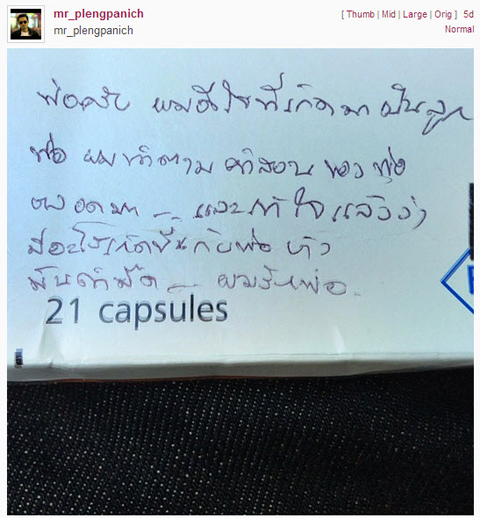 mr_plengpanich
mr_plengpanich
[ Thumb | Mid | Large | Orig ] 5d
Normal
พ่อครับ ผมดีใจที่เกิดมาเป็นลูก
พ่อ ผมทำตาม คำสอน ของ พ่อ
ตลอดมา _ _ และทำใจแล้วว่า
มีอะไรเกิดขึ้นกับพ่อ
_ ผมรักพ่อ.
21 capsules